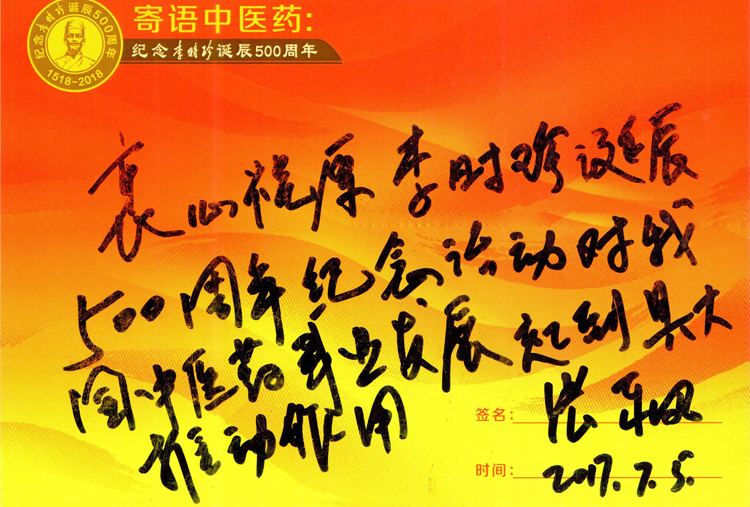 纪念李时珍诞辰500周年
1518-2018
寄语中医药:
纪念李时珍诞辰500周年
衷心祝愿李时珍诞辰
500周年纪念活动对我
国中医药事业发展起到具大
推动作用
签名:
时间: 2017.7.5.